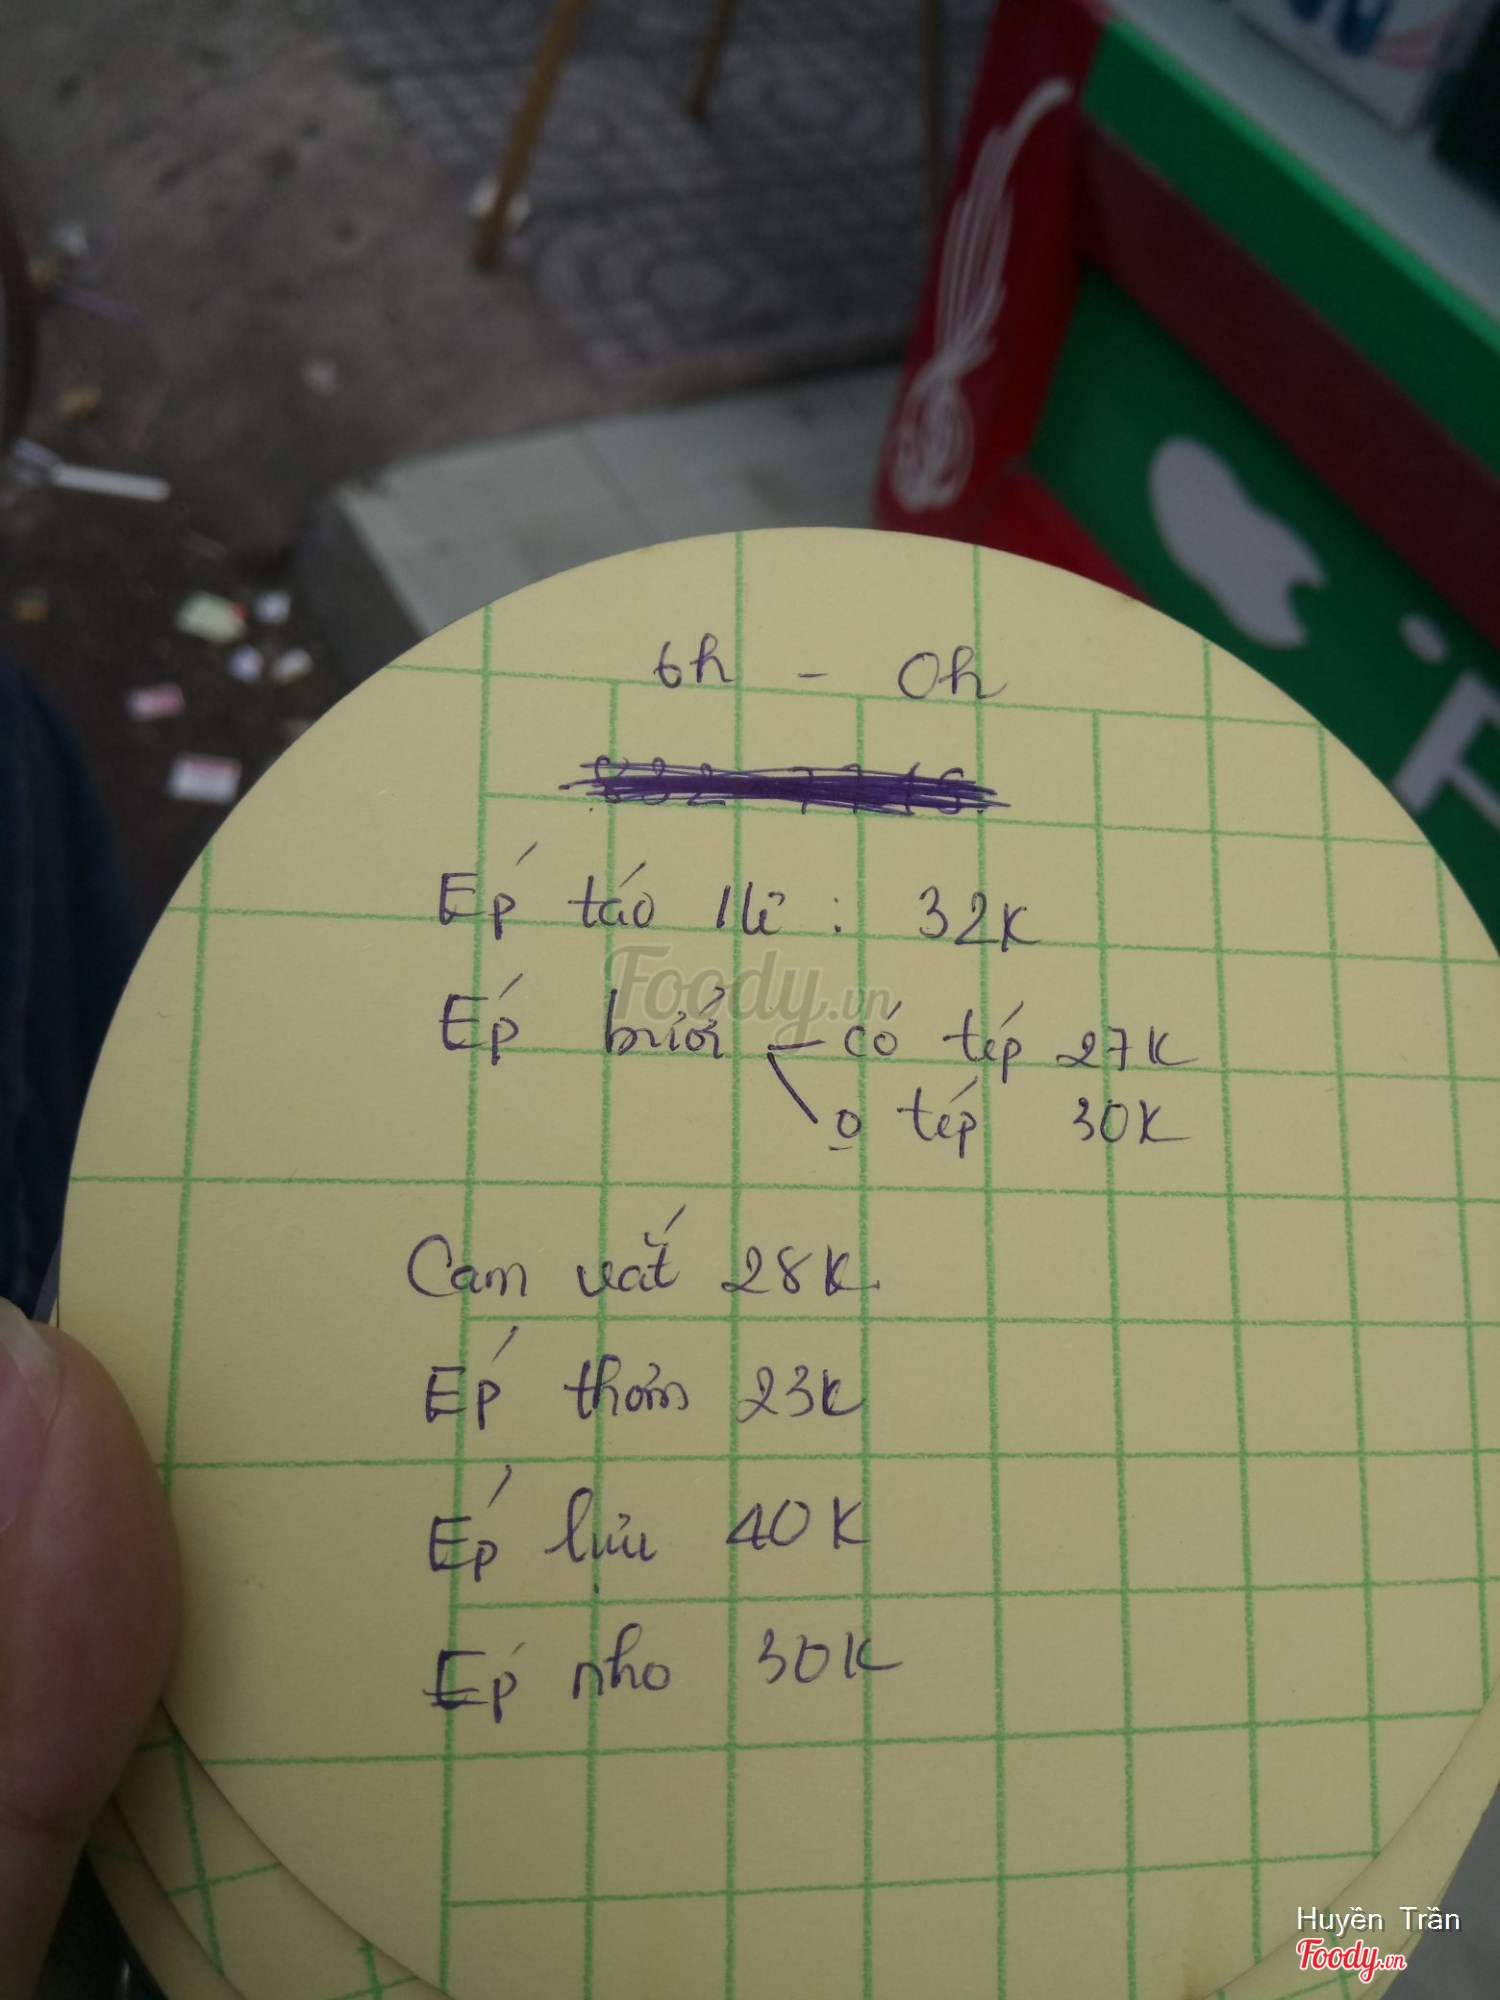 6h - 0h
Ép táo 1 li : 32K
Ép bưởi - có tép 27K
o tép 30K
Cam vắt 28K
Ép thơm 23K
Ép lựu 40K
Ép nho 30K
Foody.vn
Huyền Trần
Foody.vn